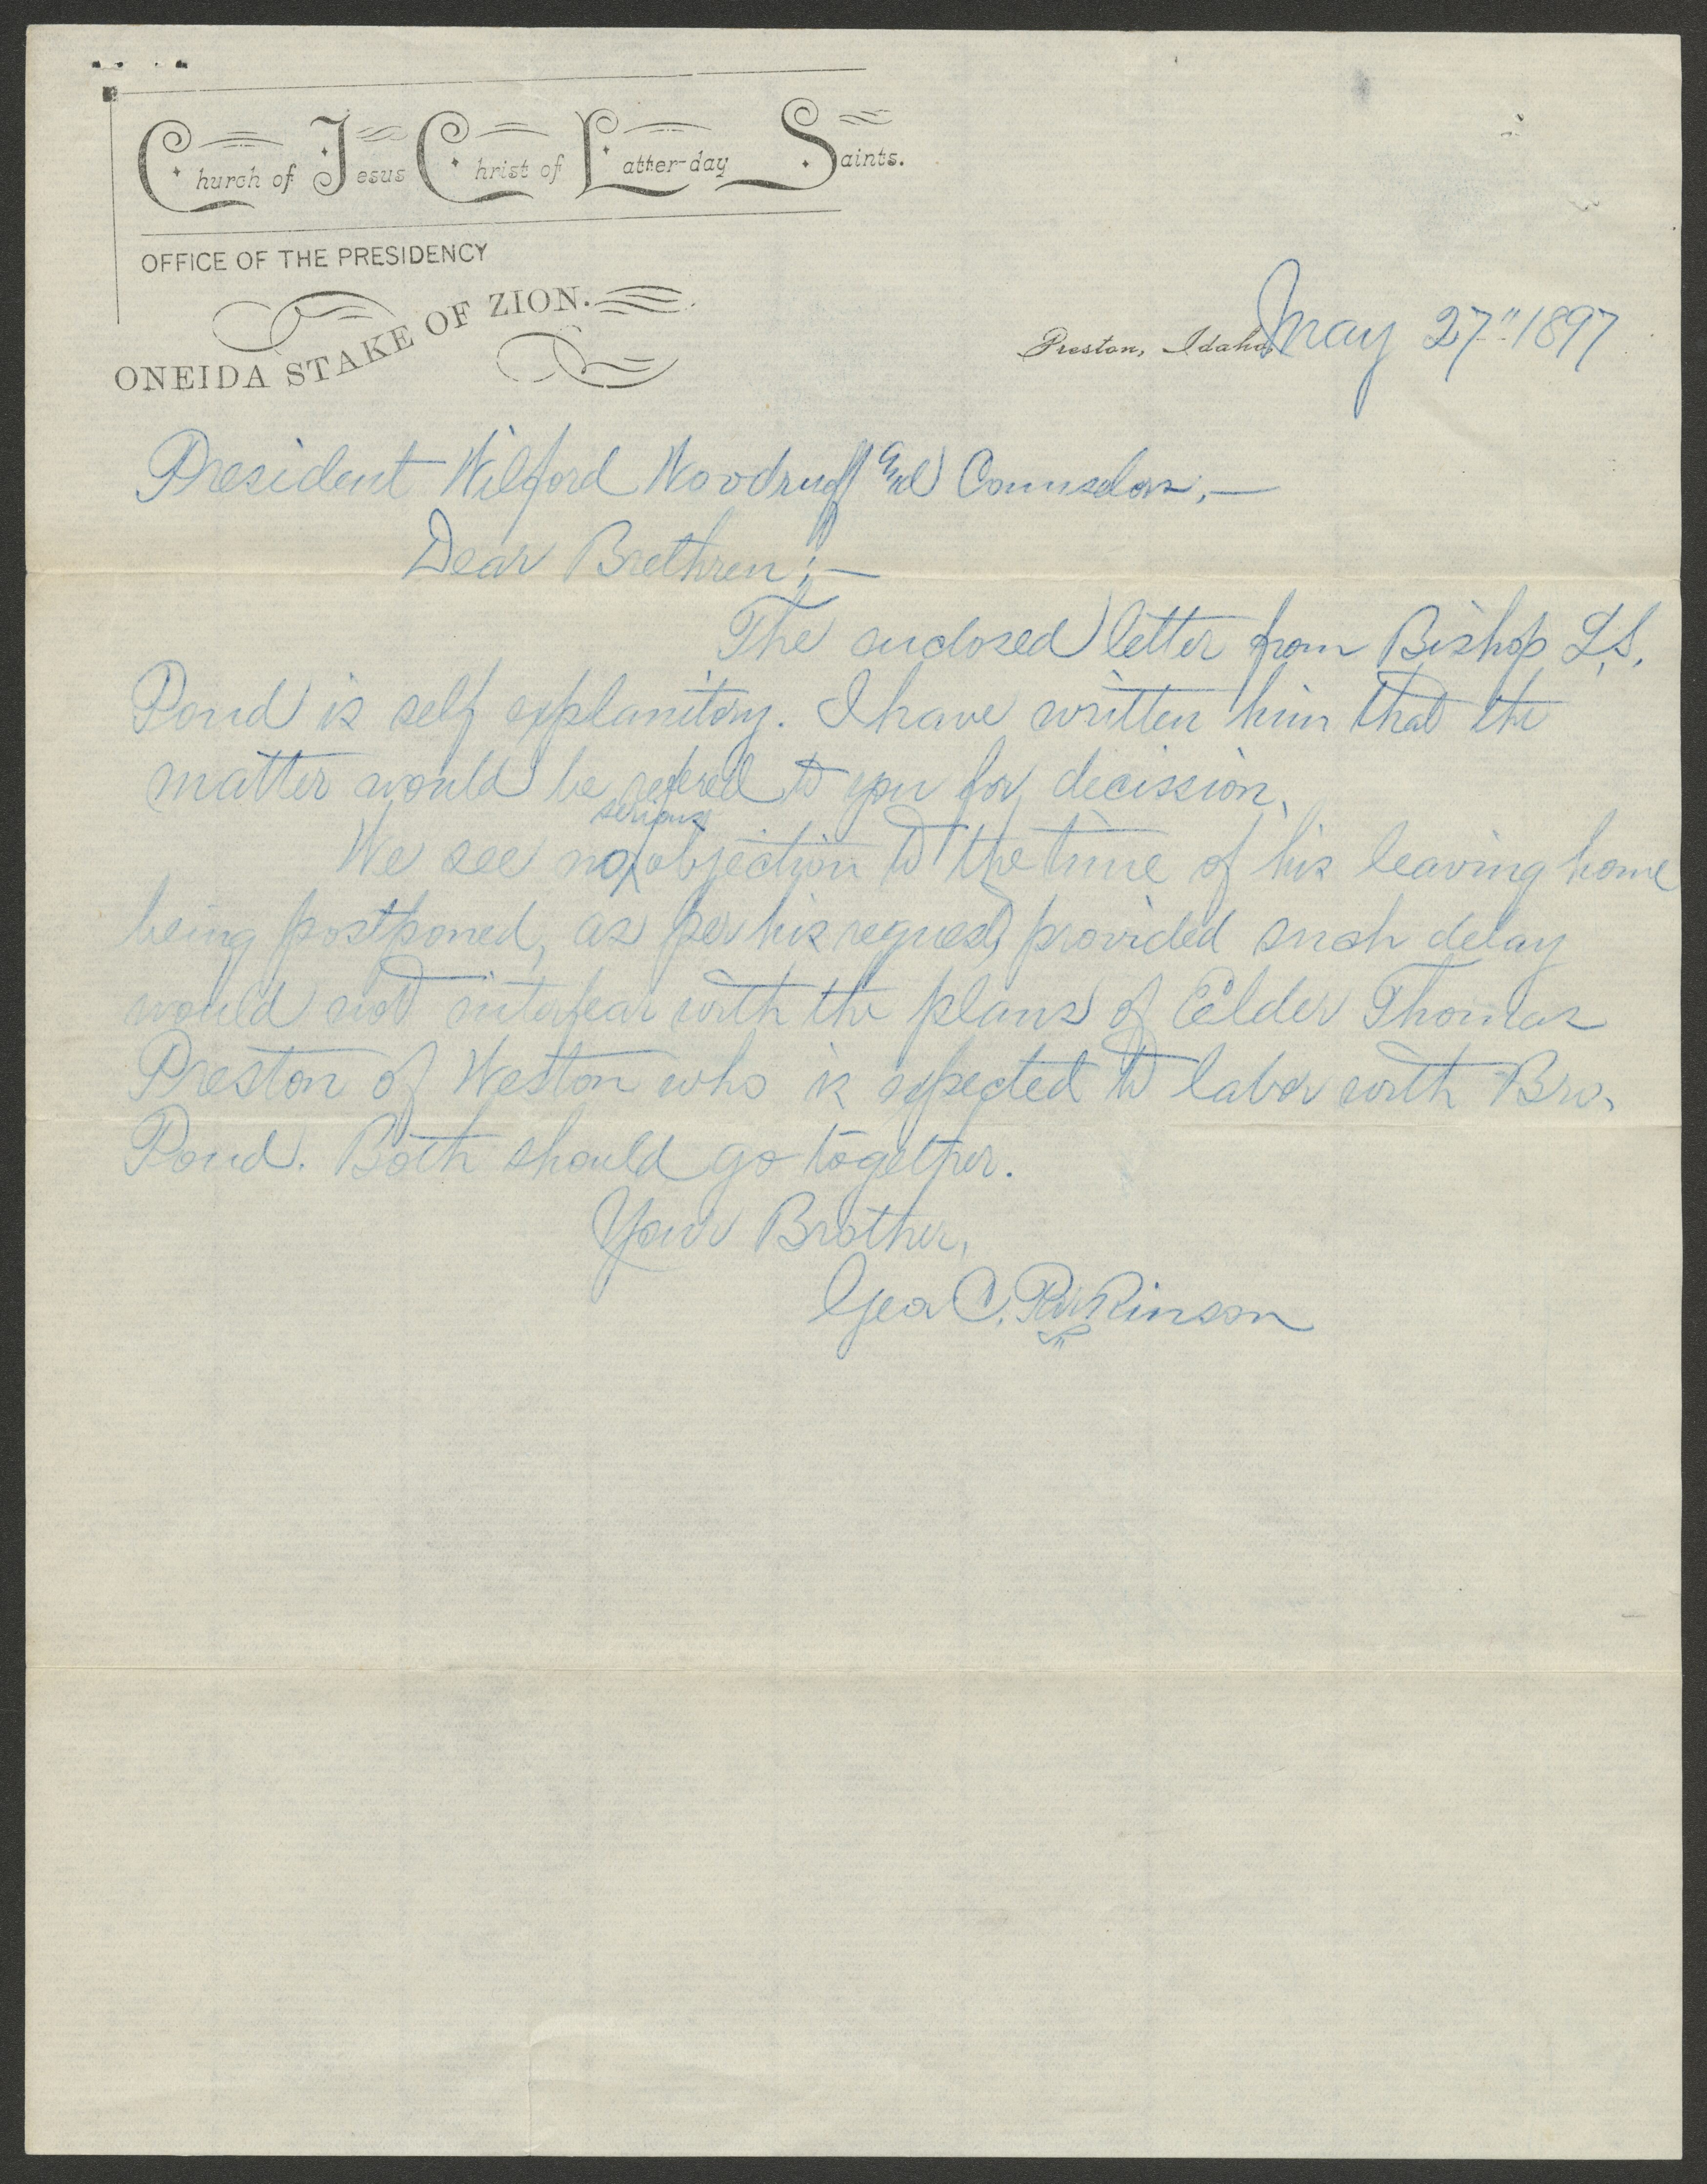 Church of Jesus Christ of Latter-day Saints.
OFFICE OF THE PRESIDENCY
ONEIDA STAKE OF ZION.
Preston, Idaho, May 27" 1897
President Wilford Woodruff and Counselors,—
Dear Brethren;—
The enclosed letter from Bishop L.S.
Pond is self explanitory. I have written him that the
matter would be refered to you for decission.
serious
We see no ^ objection to the time of his leaving home
being postponed, as per his request, provided such delay
would not interfear with the plans of Elder Thomas
Preston of Weston who is expected to labor with Bro.
Pond. Both should go together.
Your Brother,
Geo C. Parkinson